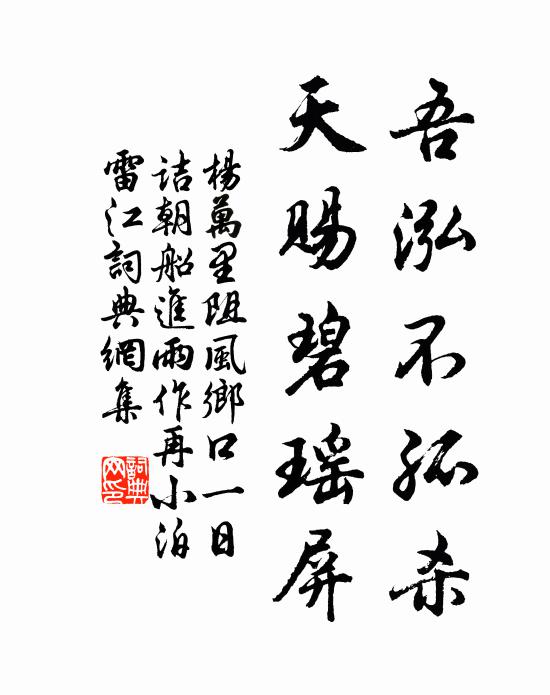 吾泓不孤杀
天赐碧瑶屏
楊萬里阻風鄉口一日
詰朝船進雨作再小泊
雷江詞典網集
詞典网印